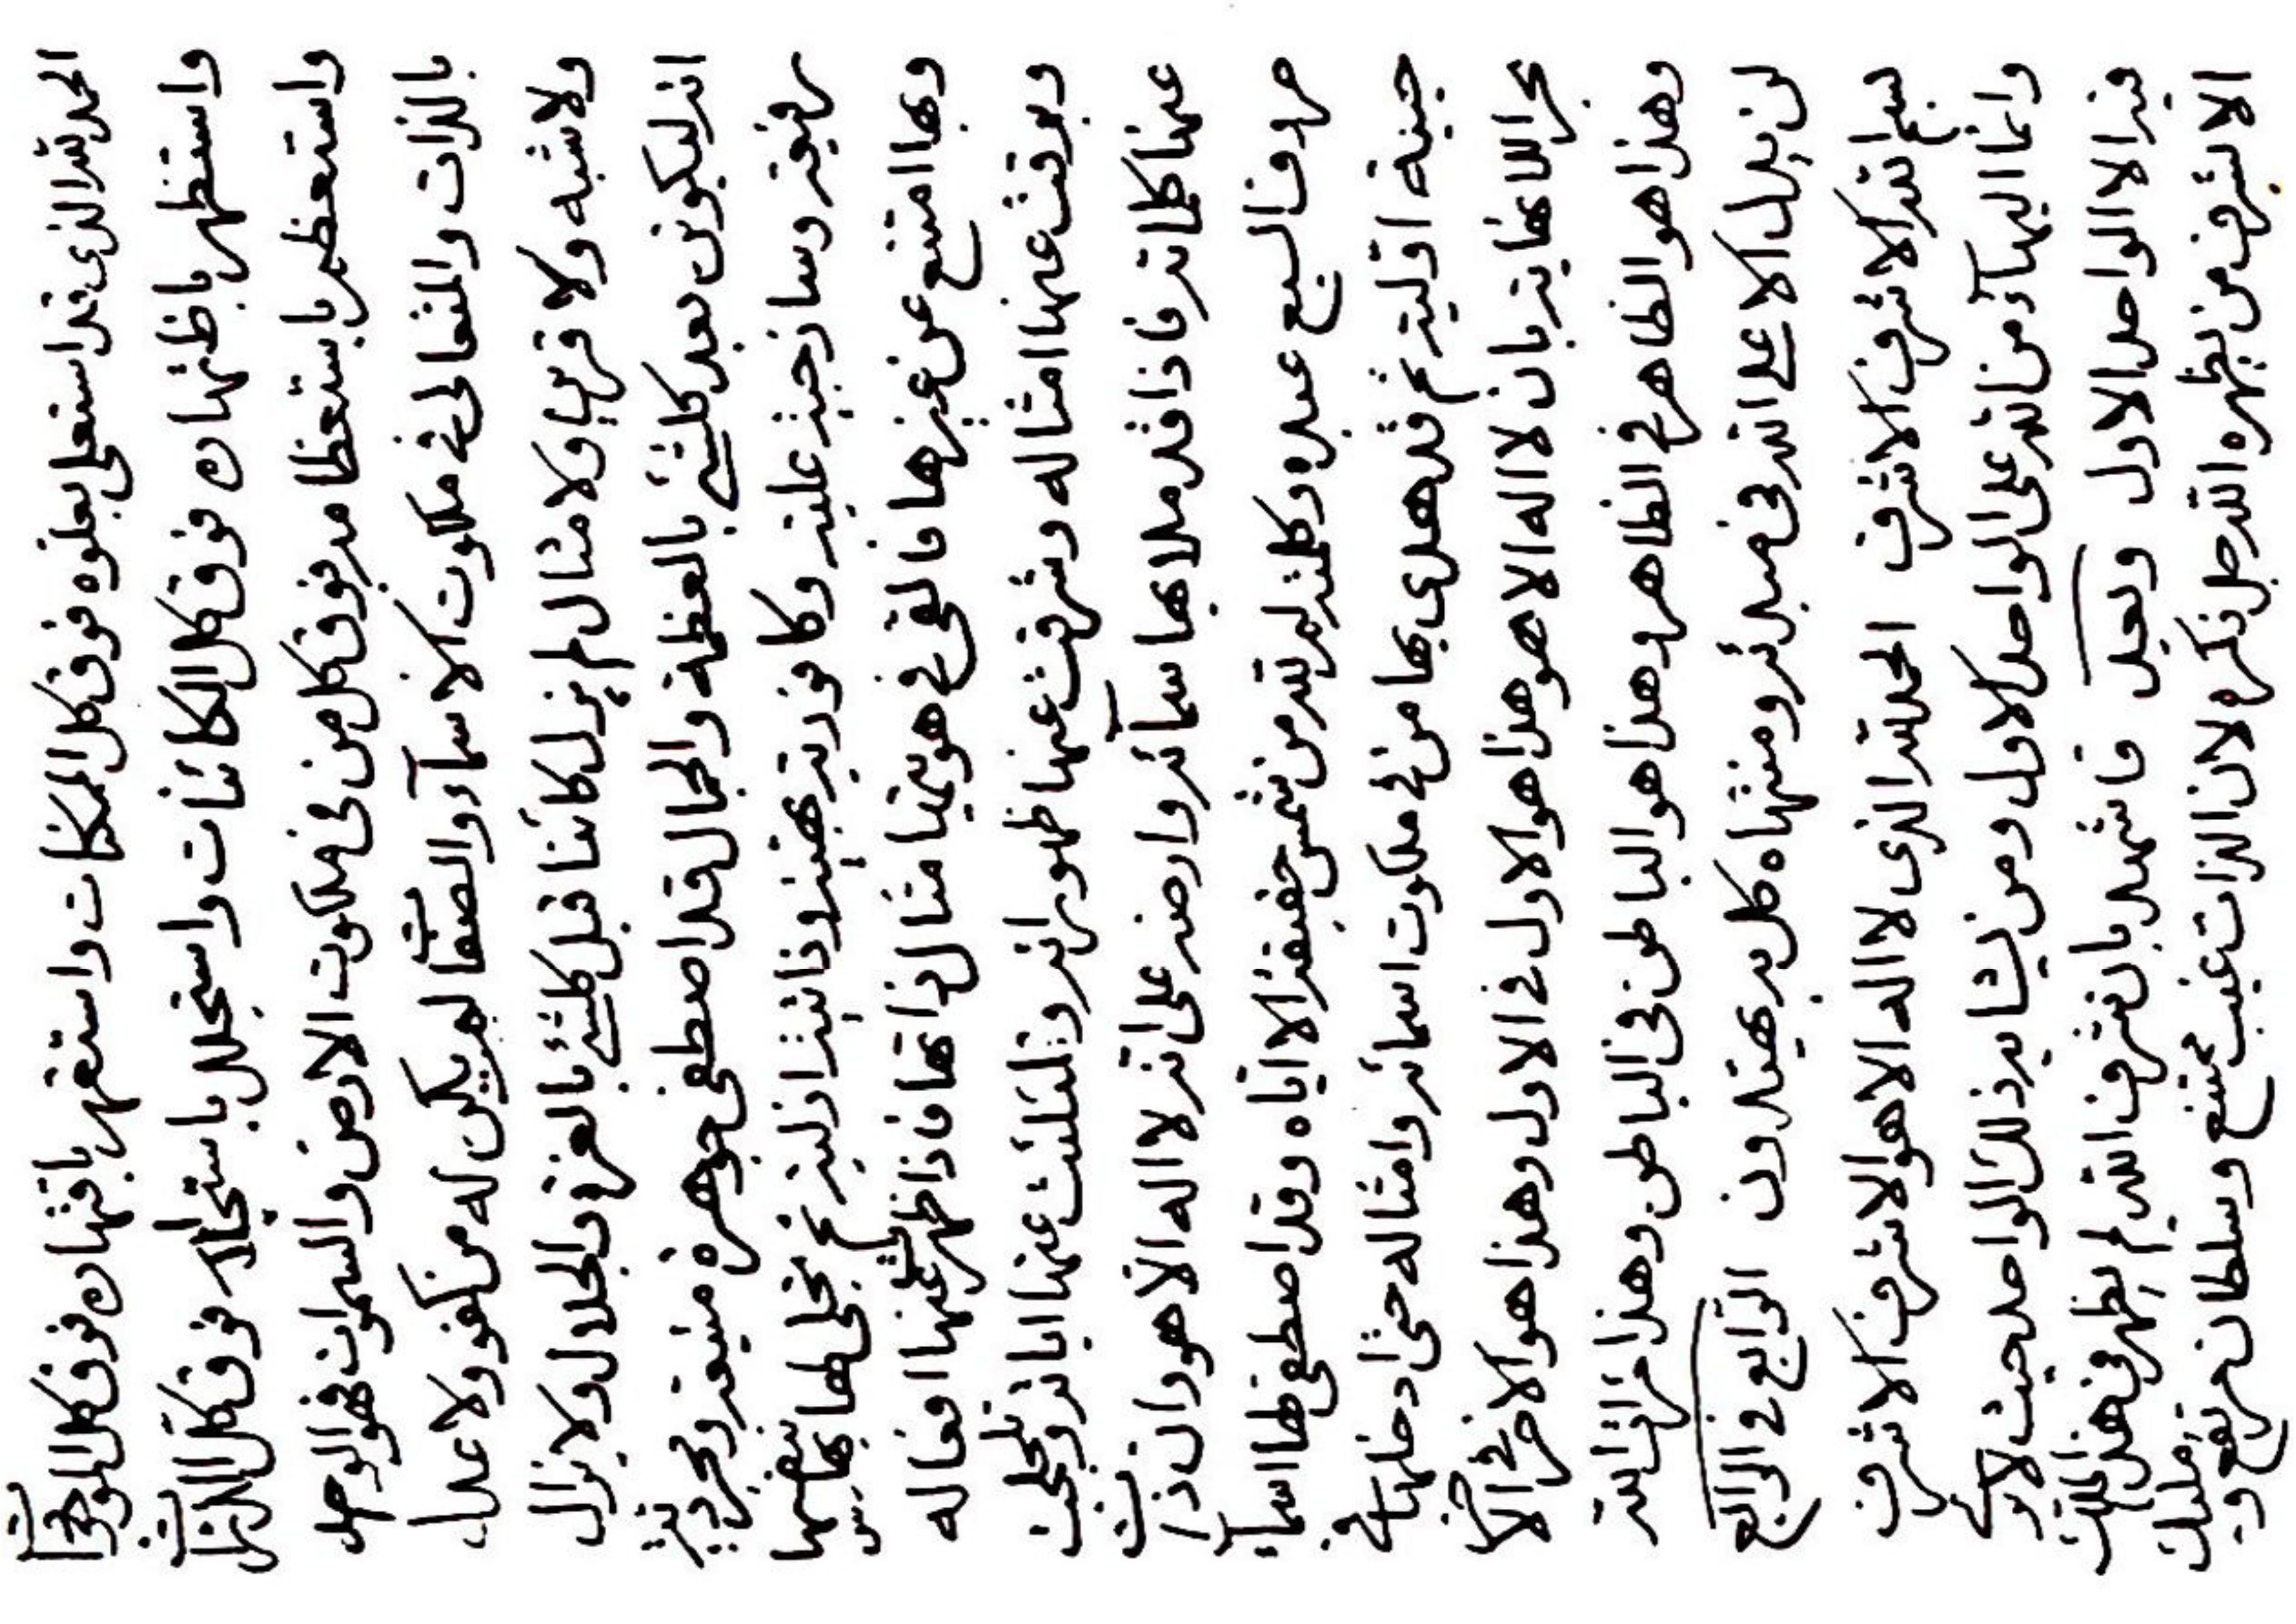 الحمد لله الذى قد استعلى بعلوه فوق كل الممكنات واستقهر باقتهاره فوق كل الموجودات
واستظهر باظتهاره فوق كل الكائنات واستجلل باستجلاله فوق كل الذرات
واستعظم باستعظامه فوق كل من فى ملكوت الارض والسموات فهو الوحد
بالذات والمتعالى فى ملكوت الاسمآء والصفات لم يكن له من كفو ولا عدل
ولا شبه ولا قرين ولا مثال لم يزل كائنا قبل كلشئ بالعز والجلال ولا يزال
انه ليكونن بعد كلشئ بالعظمة والجمال قد اصطفى جوهرة منيعة ومجردية
رفيعة وساذجية عليته وكافورية بهيته وذاتية ازلية ثم تجلى لها بها بنفسها
وبها امتنع عن غيرها فالقى فى هويتها مثال ذاتها فاذا ظهرت عنها افعاله
وبرقت عنها امثاله وشرقت عنها ظهوراته وتلئلئت عنها اياته وتلجلجت
عنها كلماته فاذا قد ملا بها سمآئه وارضه على انه لا اله الا هو وان ذات
حروف السبع عبده وكلمته لم تر من شمس حقيقة الا اياه وقد اصطفى لها اسمآء
حينه اوليته ثم قد هدى بها من فى ملكوت اسمائه وامثاله حتى ادخلها فى
بحر اللانهاية بان لا اله الا هو هذا هو الاول فى الاول وهذا هو الاخر فى الاخر
وهذا هو الظاهر فى الظاهر وهذا هو الباطن فى الباطن وهذا مرات الله
لن يدل الا على الله فى مبدئه ومنتهاه كل به يهتدون الرابع فى الرابع
بسم الله الاشرف الاشرف الحمد لله الذى لا اله الا هو الاشرف الاشرف
وانما البهآء من الله على الواحد الاول ومن يشابه ذلك الواحد حيث لا يرى
فيه الا الواحد الاول وبعد فاشهد بان شرف الله لم يظهر فى هذا الملك
الا شرف من يظهره الله جل ذكره لان الذات غيب ممتنع وسلطان مرتفع ومليك